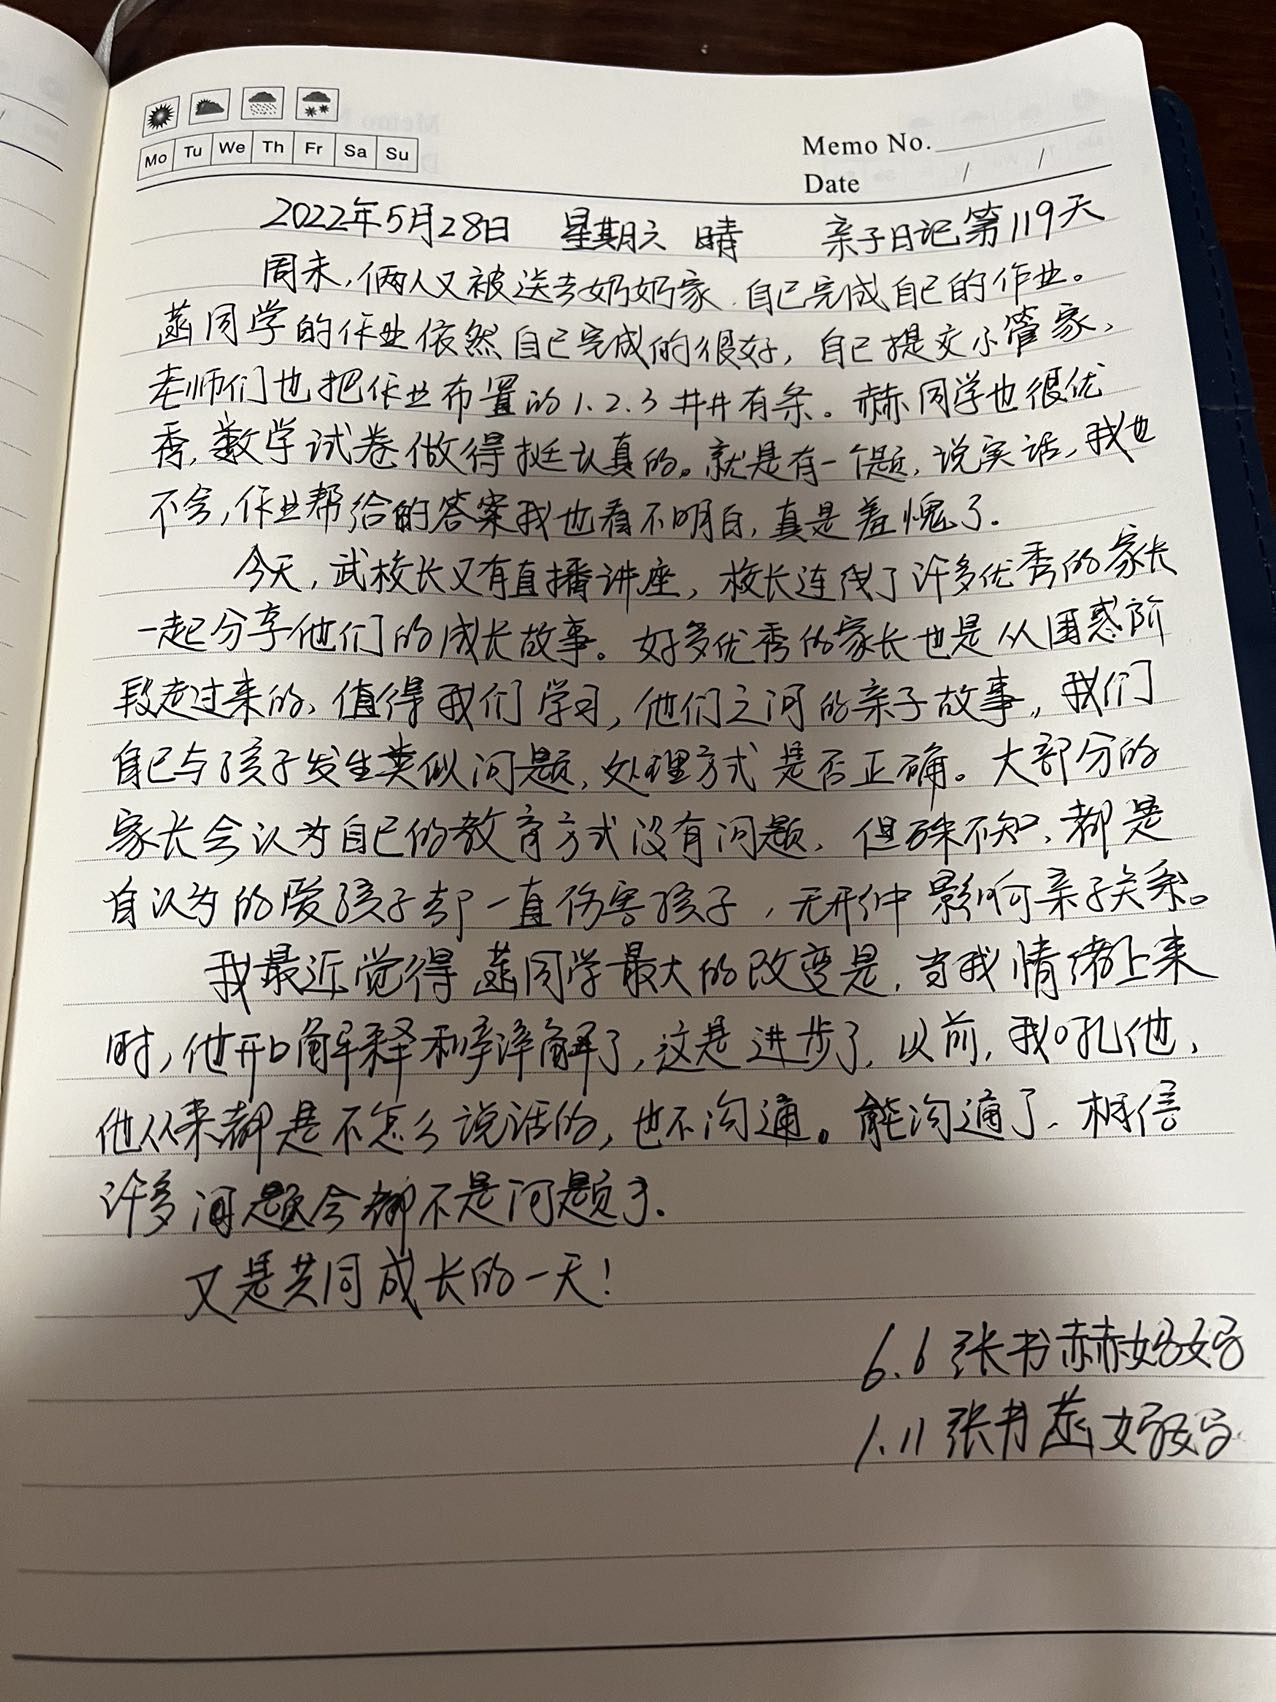 Mo Tu We Th Fr Sa Su
Memo No.
Date / /
2022年5月28日 星期六 晴 亲子日记第119天
周末,俩人又被送去奶奶家,自己完成自己的作业。
菡同学的作业依然自己完成的很好,自己提交小管家,
老师们也把作业布置的1.2.3井井有条。赫同学也很优
秀,数学试卷做得挺认真的。就是有一个题,说实话,我也
不会,作业帮给的答案我也看不明白,真是羞愧了.
今天,武校长又有直播讲座,校长连线了许多优秀的家长
一起分享他们的成长故事。好多优秀的家长也是从困惑阶
段走过来的,值得我们学习,他们之间的亲子故事,我们
自己与孩子发生类似问题,处理方式是否正确。大部分的
家长会认为自己的教育方式没有问题,但殊不知,都是
自认为的爱孩子却一直伤害孩子,无形中影响亲子关系。
我最近觉得菡同学最大的改变是,当我情绪上来
时,他开口解释和辩解了,这是进步了,以前,我吼他,
他从来都是不怎么说话的,也不沟通。能沟通了,相信
许多问题会都不是问题了.
又是共同成长的一天!
6.6张书赫妈妈
1.11张书菡妈妈